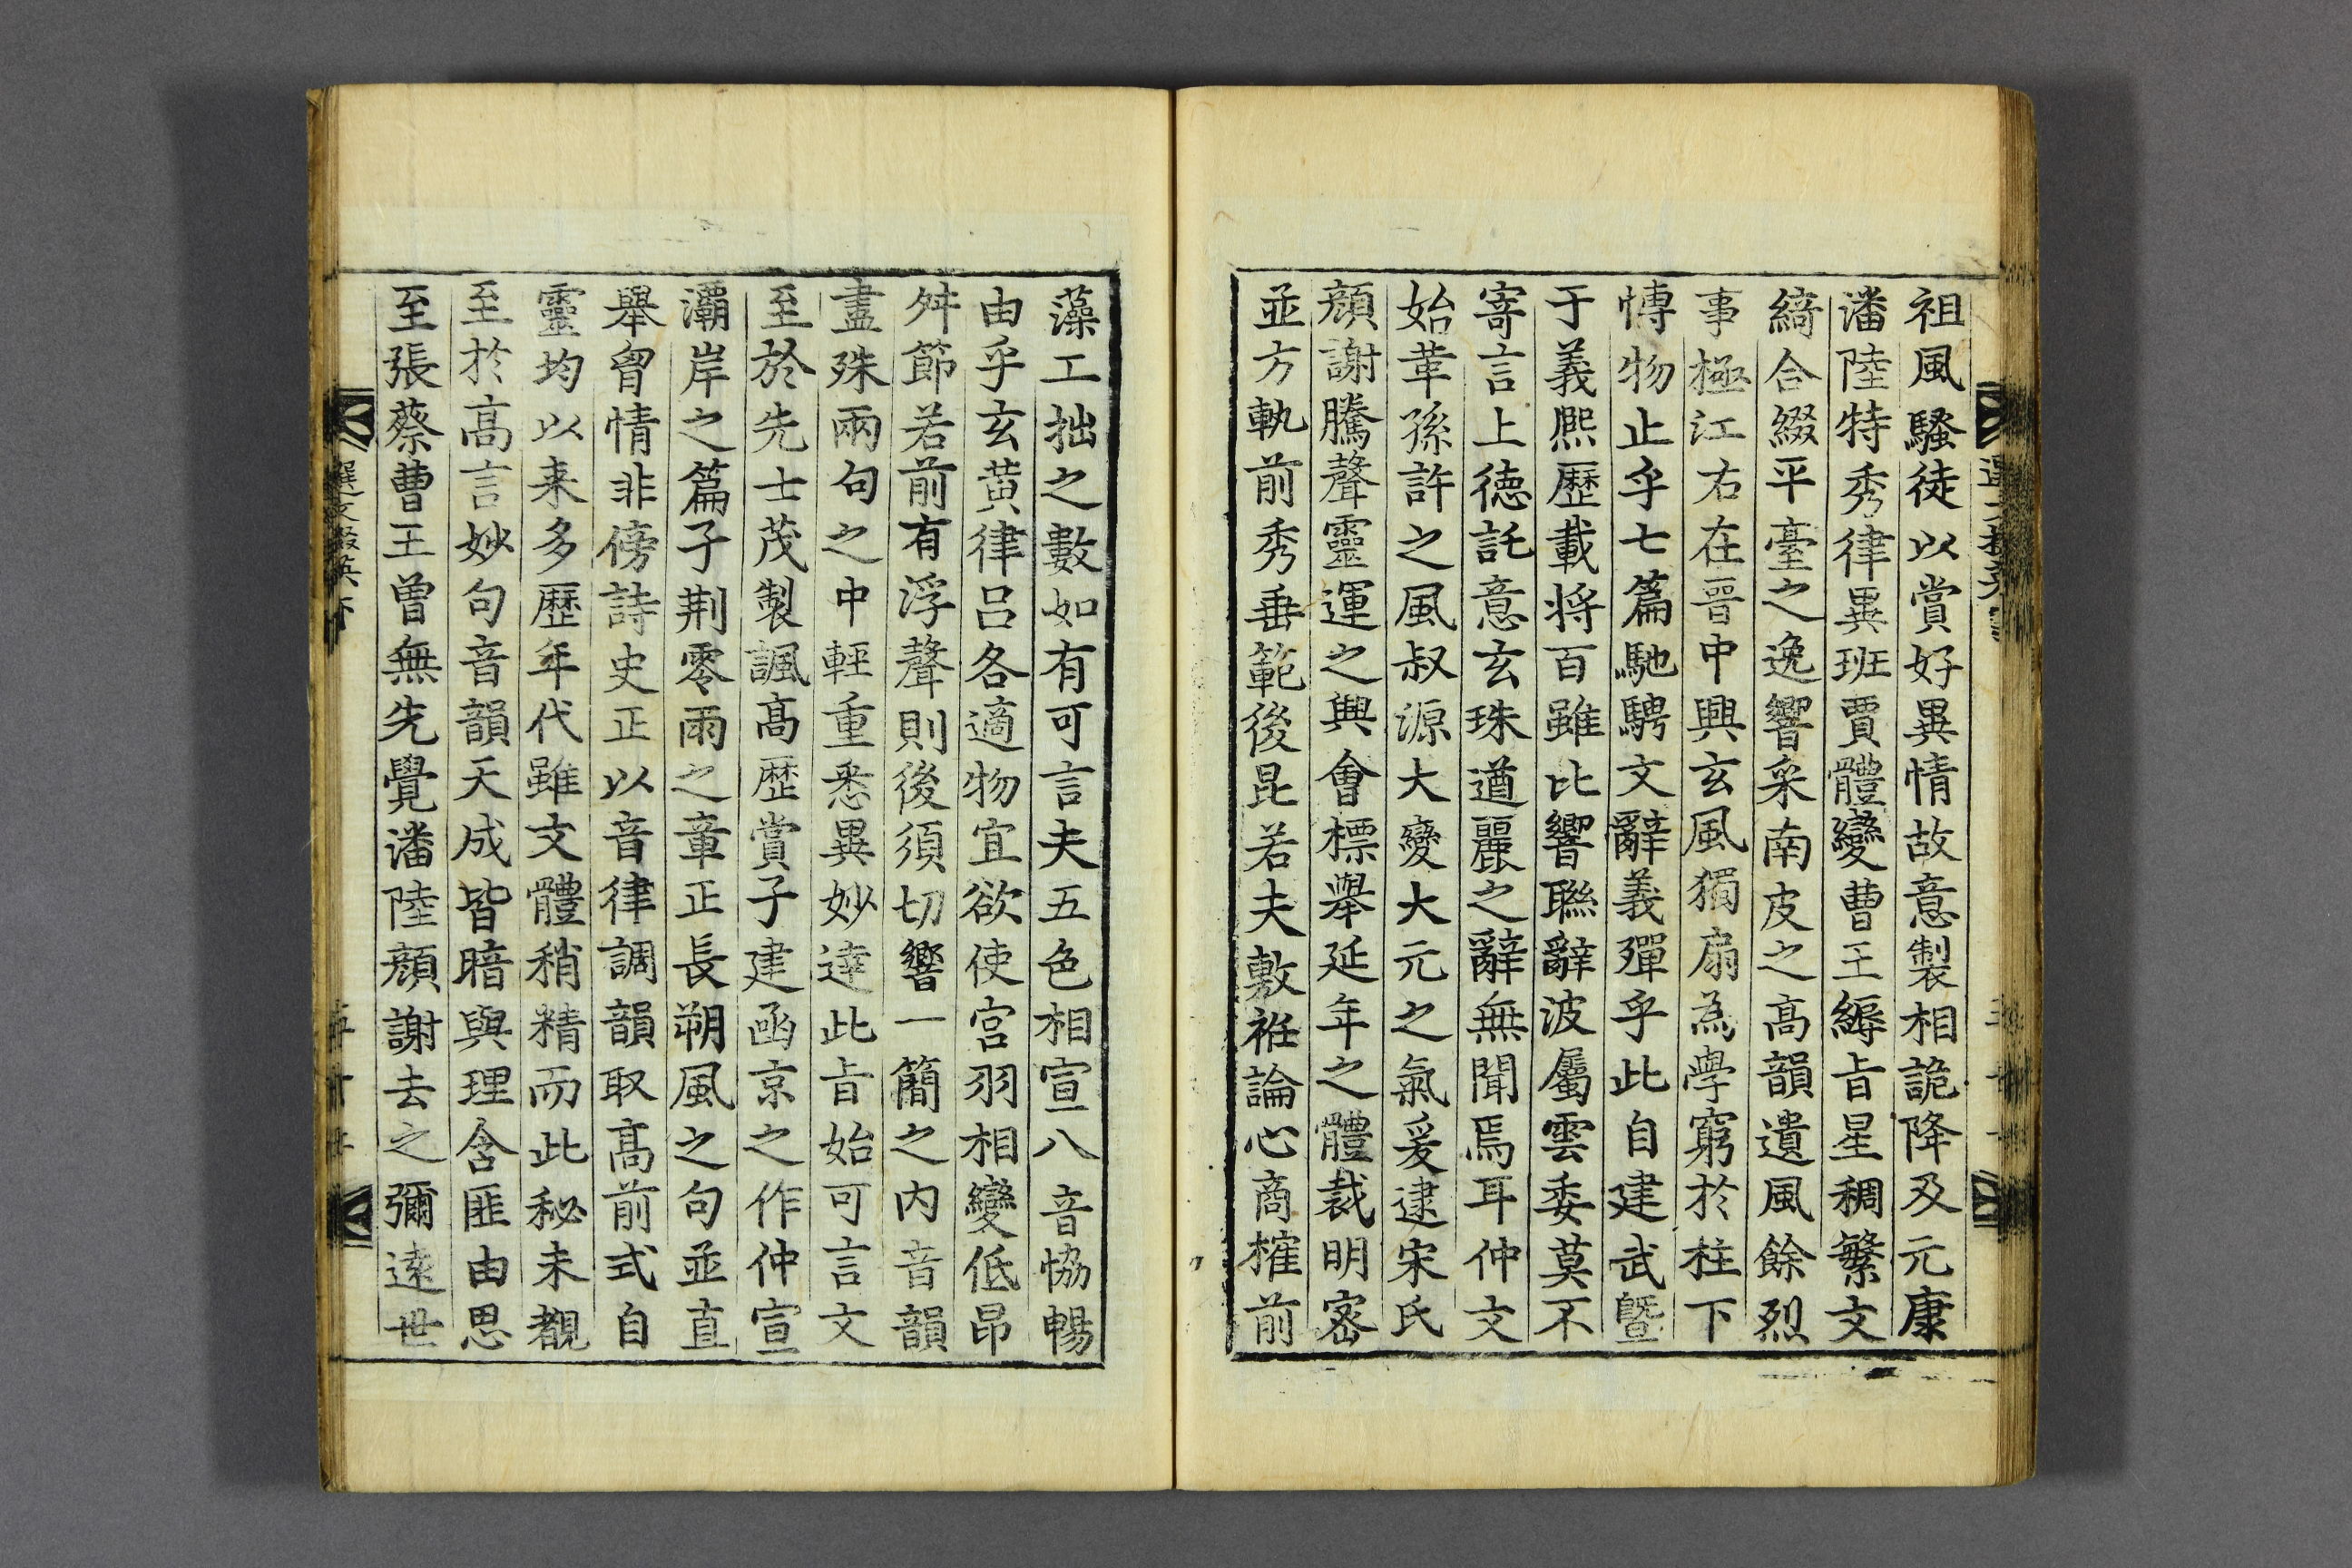 祖風騷徒以賞好異情故意製相詭降及元康
潘陸特秀律異班賈體變曹王縟旨星稠繁文
綺合綴平臺之逸響采南皮之高韻遺風餘烈
事極江右在晉中興玄風獨扇為學窮於柱下
愽物止乎七篇馳騁文辭義殫乎此自建武曁
于義熙歷載將百雖比響聯辭波屬雲委莫不
寄言上德託意玄珠遒麗之辭無聞焉耳仲文
始革孫許之風叔源大變大元之氣爰逮宋氏
顔謝騰聲靈運之興會標舉延年之體裁明密
並方軌前秀垂範後昆若夫敷袵論心商榷前
藻工拙之數如有可言夫五色相宣八音恊暢
由乎玄黃律呂各適物宜欲使宮羽相變低昂
舛節若前有浮聲則後須切響一簡之內音韻
盡殊兩句之中輕重悉異妙達此旨始可言文
至於先士茂製諷高歷賞子建函京之作仲宣
灞岸之篇子荆零雨之章正長朔風之句並直
舉胷情非傍詩史正以音律調韻取高前式自
靈均以来多歷年代雖文體稍精而此秘未覩
至於高言妙句音韻天成皆暗與理含匪由思
至張蔡曹王曽無先覺潘陸顔謝去之彌遠世